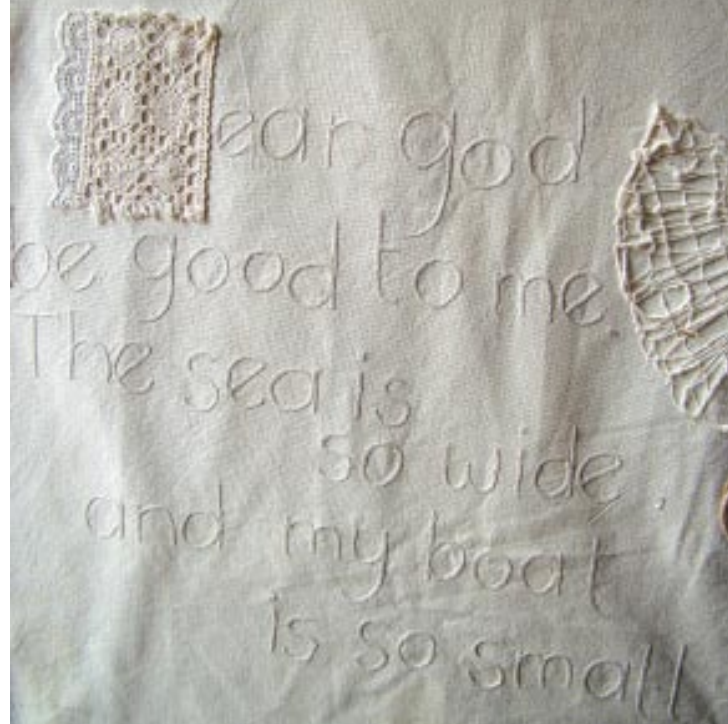 ear god
be good to me.
The sea is
so wide,
and my boat
is so small